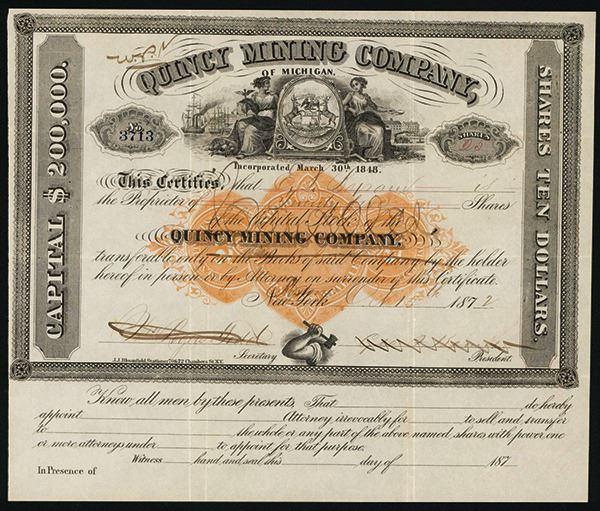 W.P.N
QUINCY MINING COMPANY,
OF MICHIGAN.
No
3713
SHARES
20
CAPITAL $ 200,000.
SHARES TEN DOLLARS.
Incorporated March 30th 1848.
This Certifies, that
the Proprietor of Shares
of the Capital Stock of the
QUINCY MINING COMPANY,
transferable only on the Books of said Company by the holder
hereof in person or by Attorney on surrender of this Certificate.
New York 1872
Secretary President.
J.J. Bloomfield Stationer 70&72 Chambers St. N.Y.
Know all men by these presents That do hereby
appoint Attorney irrevocably for to sell and transfer
to the whole or any part of the above named shares, with power one
or more attorneys under to appoint for that purpose.
Witness hand and seal this day of 187
In Presence of